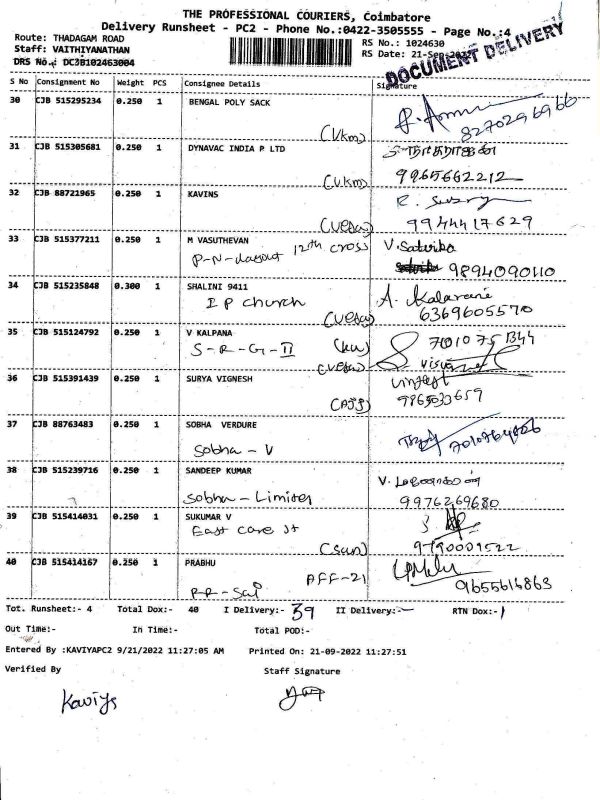 THE PROFESSIONAL COURIERS, Coimbatore
Delivery Runsheet - PC2 - Phone No.:0422-3505555 - Page No.:4
Route: THADAGAM ROAD
Staff: VAITHIYANATHAN
DRS No.: DC3B102463004
RS No.: 1024630
RS Date: 21-Sep-2022
DOCUMENT DELIVERY
S No Consignment No Weight PCS Consignee Details Signature
30 CJB 515295234 0.250 1 BENGAL POLY SACK
(Vkm) 8270296966
31 CJB 515305681 0.250 1 DYNAVAC INDIA P LTD
(Vkm) 9965662212
32 CJB 88721965 0.250 1 KAVINS
9944417629
33 CJB 515377211 0.250 1 M VASUTHEVAN 12th cross V.Satvika
P-N-Layout 9894090110
34 CJB 515235848 0.300 1 SHALINI 9411 A. Kalarani
I P church 6369605570
35 CJB 515124792 0.250 1 V KALPANA
S-R-G-II
36 CJB 515391439 0.250 1 SURYA VIGNESH
9865033659
37 CJB 88763483 0.250 1 SOBHA VERDURE
Sobha - V
38 CJB 515239716 0.250 1 SANDEEP KUMAR
Sobha - Limited 9976269680
39 CJB 515414031 0.250 1 SUKUMAR V
East Care st
(Sun) 9790001522
40 CJB 515414167 0.250 1 PRABHU
AFF-21
RR-Sai 9655616863
Tot. Runsheet:- 4 Total Dox:- 40 I Delivery:- 39 II Delivery:- - RTN Dox:- 1
Out Time:- In Time:- Total POD:-
Entered By :KAVIYAPC2 9/21/2022 11:27:05 AM Printed On: 21-09-2022 11:27:51
Verified By Staff Signature
Kaviya